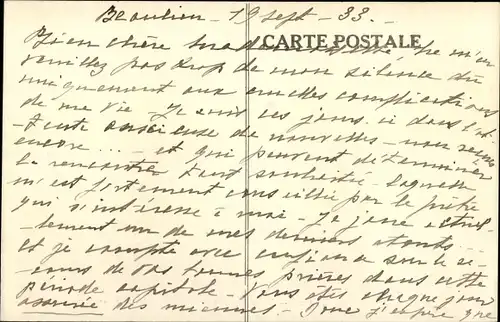 Beaulieu - 19 sept - 33 -
CARTE POSTALE
Bien chère ne m'en
veuillez pas trop de mon silence dû
uniquement aux cruelles complications
de ma vie - Je suis ces jours-ci dans l'at-
-tente anxieuse de nouvelles - non reçues
encore ... - et qui peuvent déterminer
la rencontre tant souhaitée - laquelle
m'est fortement conseillée par le prêtre
qui s'intéresse à moi - Je joue actuel-
-lement un de mes derniers atouts ...
et je compte avec confiance sur le se-
-cours de vos bonnes prières dans cette
période capitale - Vous êtes chaque jour
assurée des miennes - Donc j'espère que